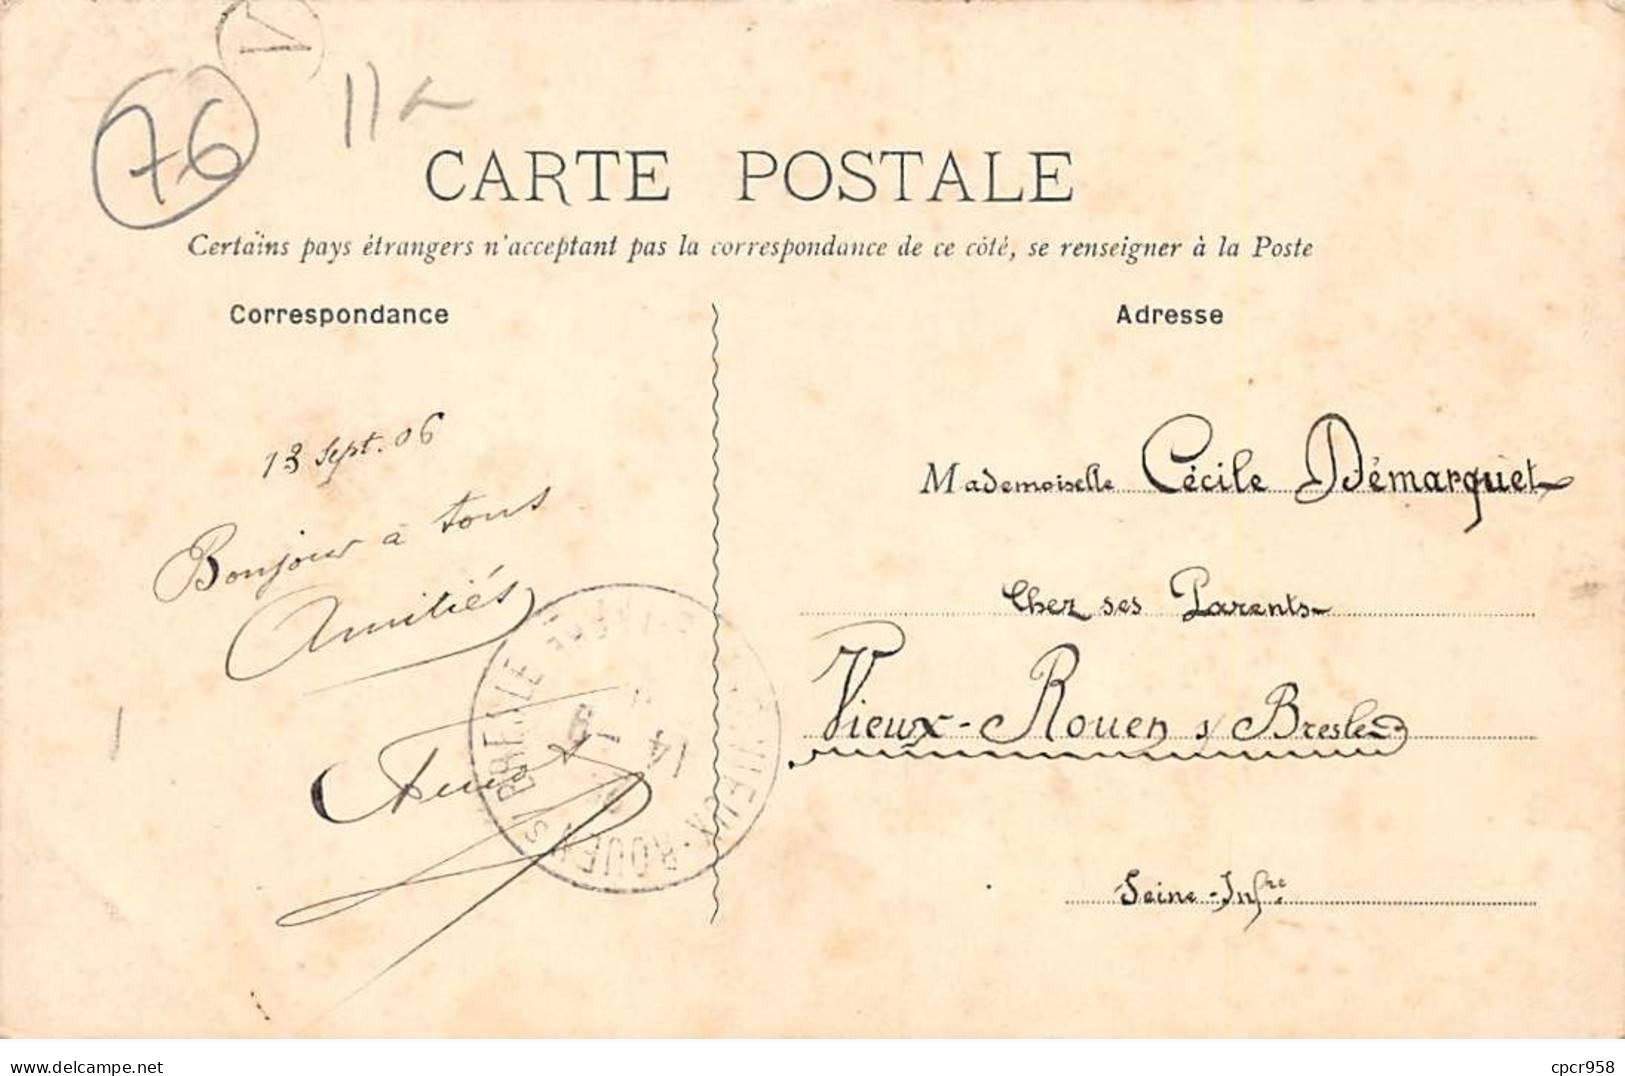 76
CARTE POSTALE
Certains pays étrangers n'acceptant pas la correspondance de ce côté, se renseigner à la Poste
Correspondance
Adresse
13 Sept. 06
Bonjour à tous
Amitiés
Mademoiselle Cécile Démarquet
Chez ses Parents
Vieux-Rouen s/ Bresle
Seine-Infre
VIEUX-ROUEN S/ BRESLE
14
delcampe.net
cpcr958